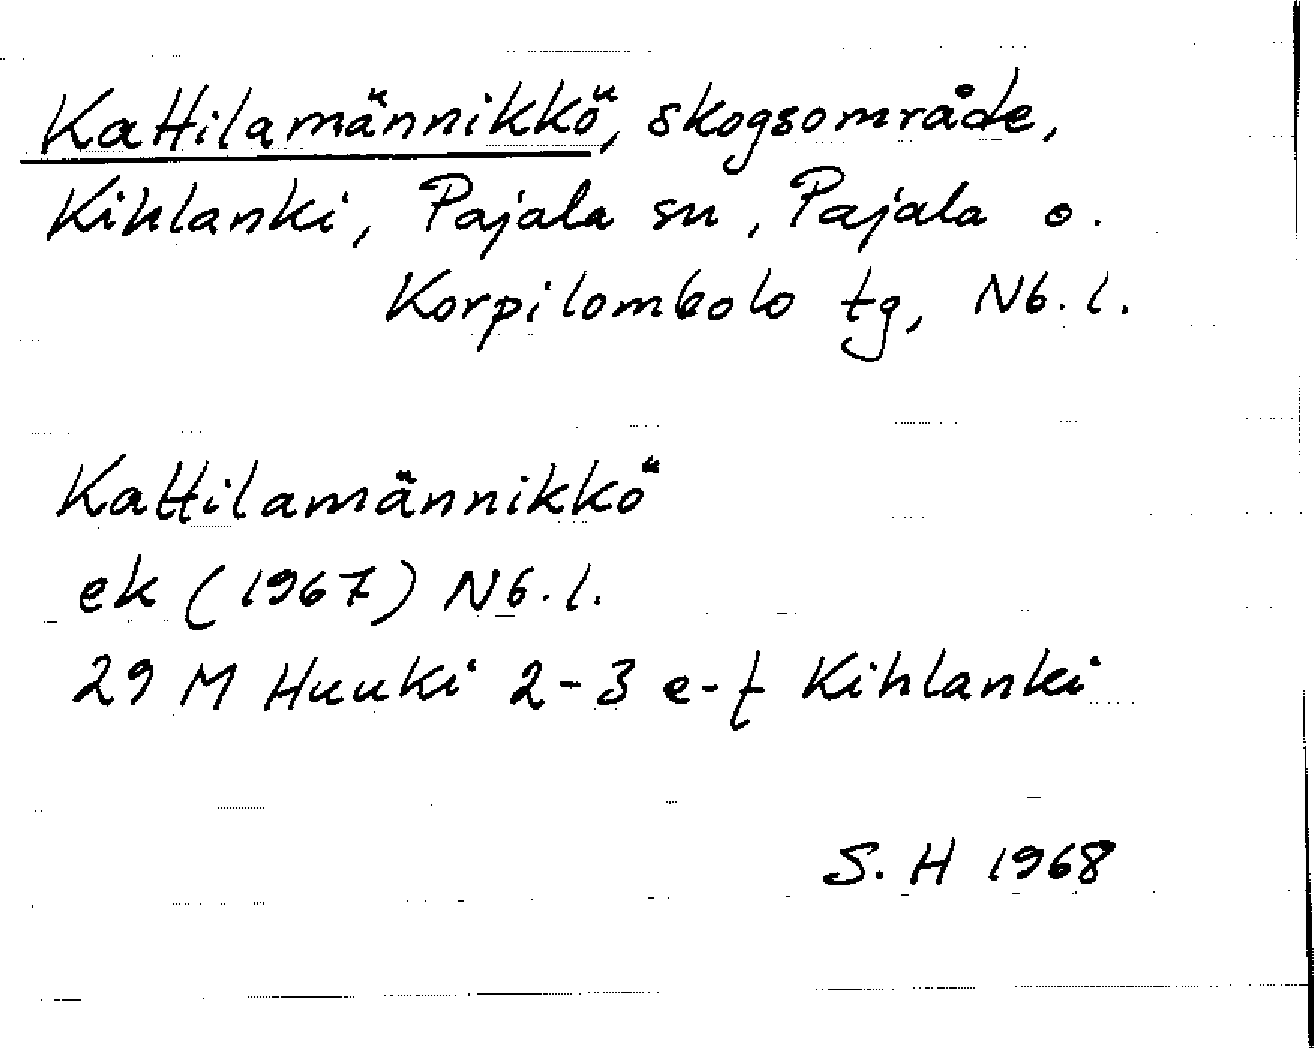 Kattilamännikkö, skogsområde,
Kihlanki, Pajala sn, Pajala o.
Korpilombolo tg, Nb. l.
Kattilamännikkö
ek (1967) Nb. l.
29 M Huuki 2-3 e-f Kihlanki
S. H 1968